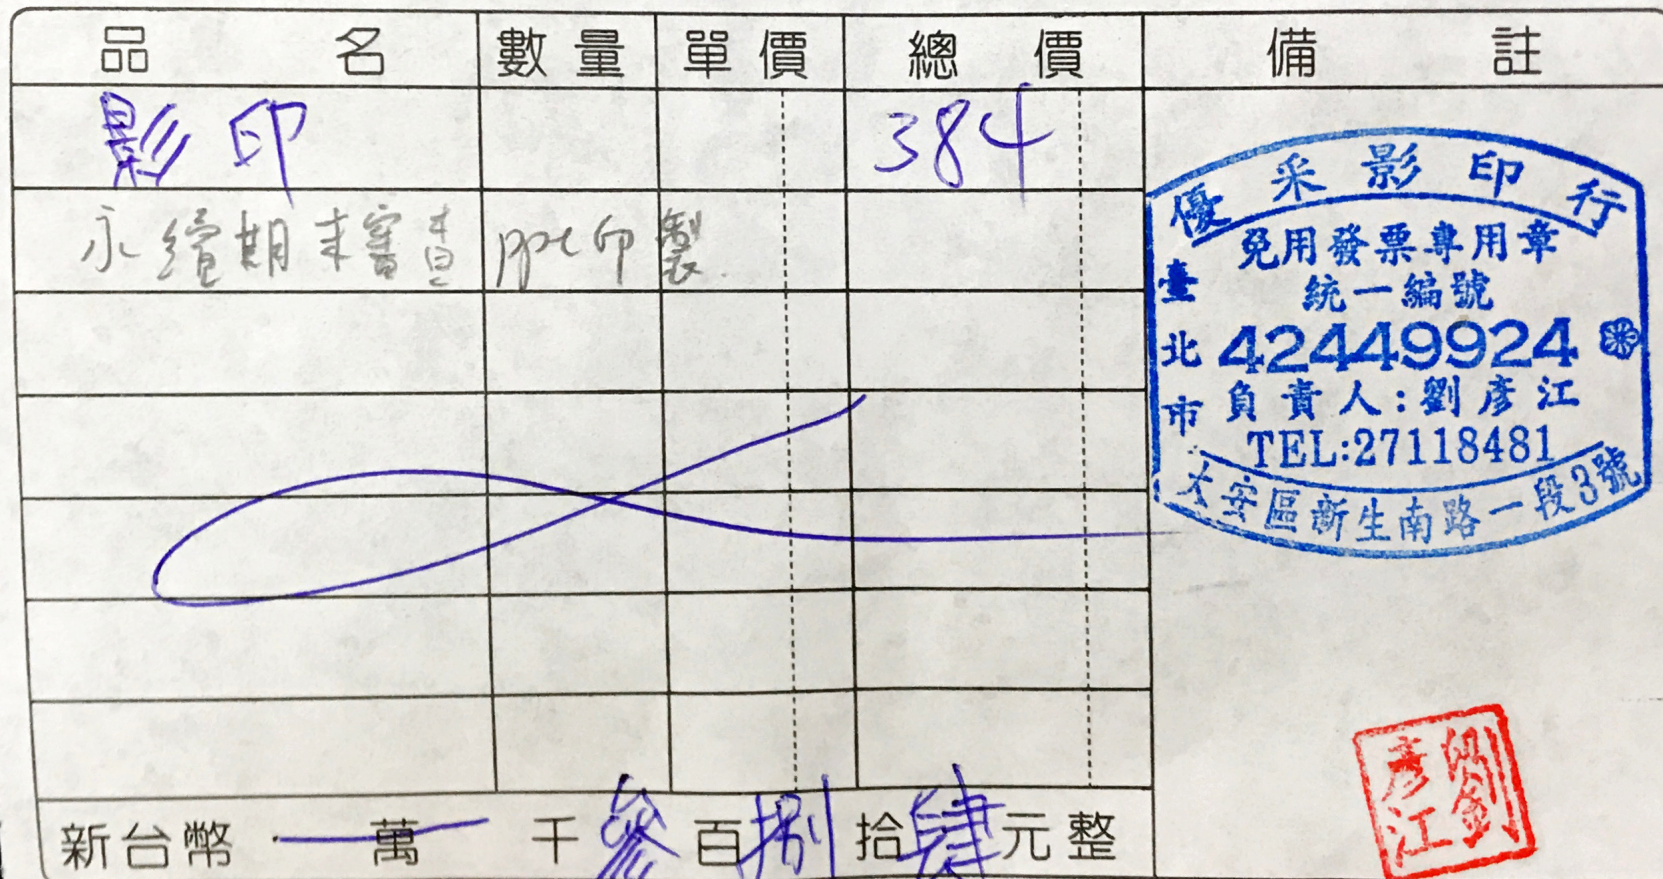 品名 數量 單價 總價 備註
影印 384
永續期末審查 ppt印製
優采影印行
免用發票專用章
統一編號
臺北市
42449924
負責人:劉彥江
TEL:27118481
大安區新生南路一段3號
新台幣 萬 千參百捌拾肆元整
劉彥江